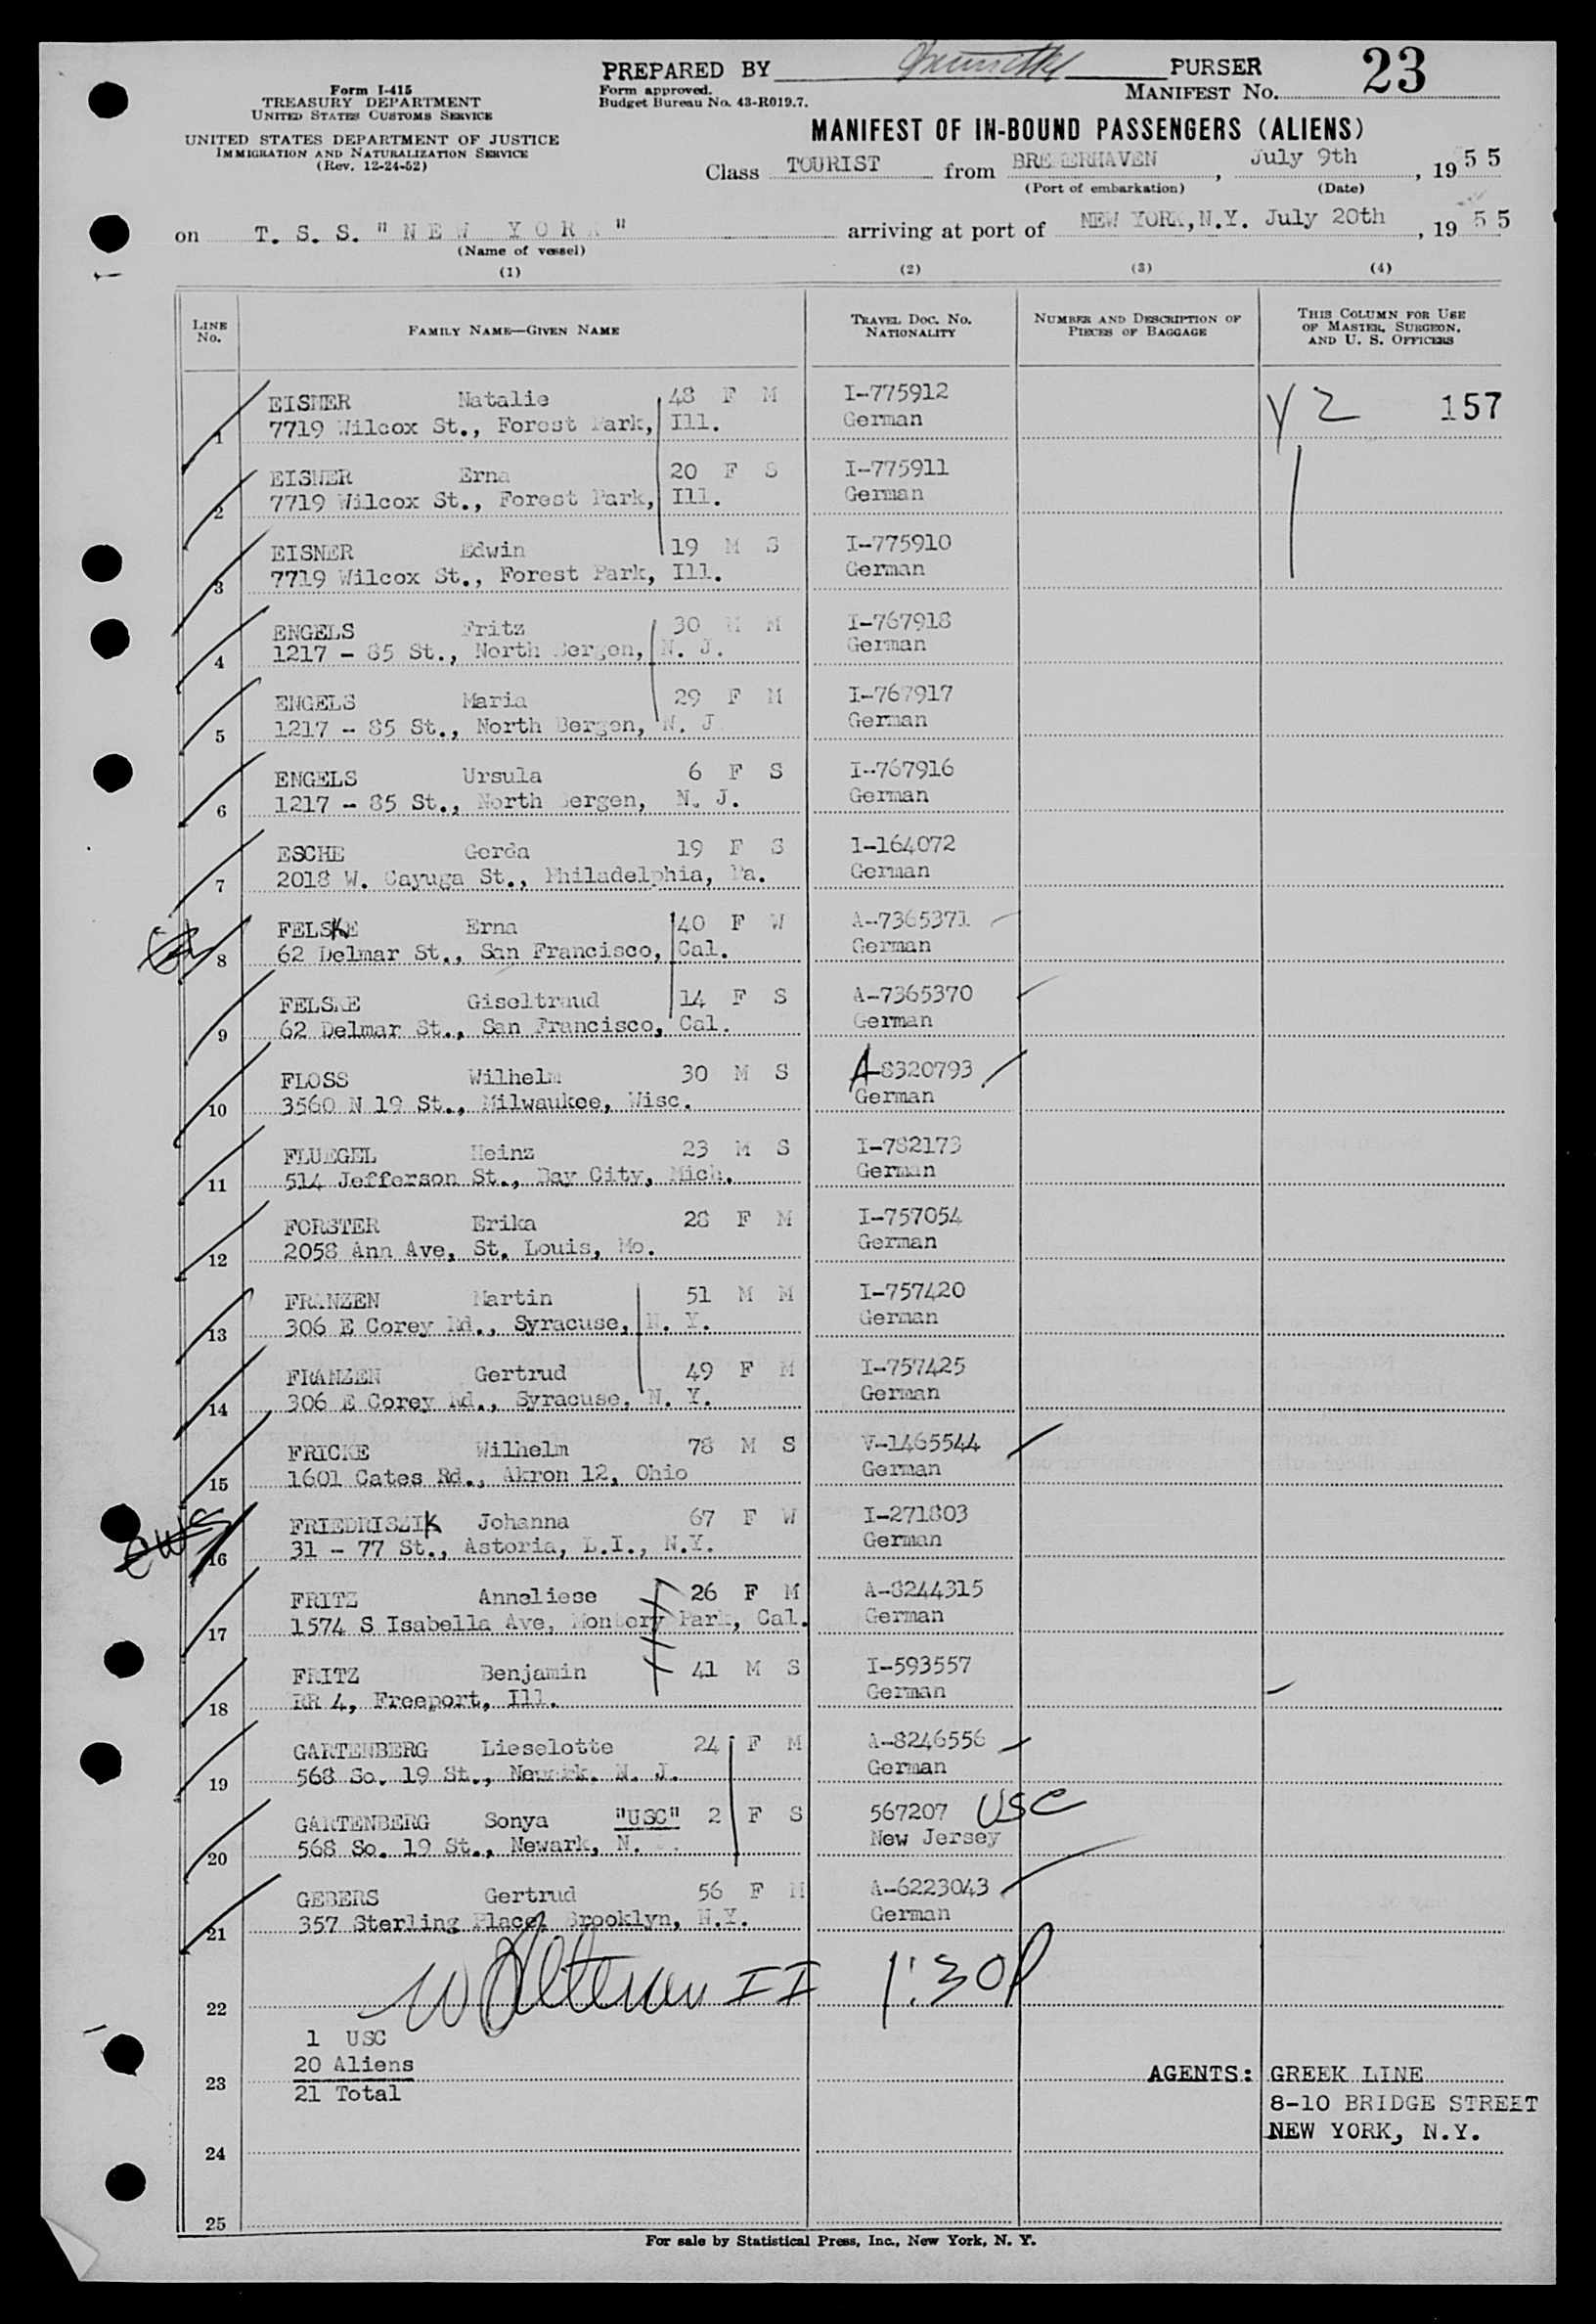 PREPARED BY PURSER 23
Form I-415
TREASURY DEPARTMENT
UNITED STATES CUSTOMS SERVICE
UNITED STATES DEPARTMENT OF JUSTICE
IMMIGRATION AND NATURALIZATION SERVICE
(Rev. 12-24-52)
Form approved.
Budget Bureau No. 43-R019.7.
MANIFEST NO.
MANIFEST OF IN-BOUND PASSENGERS (ALIENS)
Class TOURIST from BREMERHAVEN, July 9th, 1955
(Port of embarkation) (Date)
on T. S. S. "NEW YORK" arriving at port of NEW YORK, N.Y. July 20th, 1955
(Name of vessel)
(1) (2) (3) (4)
LINE NO. FAMILY NAME—GIVEN NAME TRAVEL DOC. NO. NATIONALITY NUMBER AND DESCRIPTION OF PIECES OF BAGGAGE THIS COLUMN FOR USE OF MASTER, SURGEON, AND U. S. OFFICERS
EISNER Natalie 48 F M I-775912 Y2 157
1 7719 Wilcox St., Forest Park, Ill. German
EISNER Erna 20 F S I-775911
2 7719 Wilcox St., Forest Park, Ill. German
EISNER Edwin 19 M S I-775910
3 7719 Wilcox St., Forest Park, Ill. German
ENGELS Fritz 30 M M I-767918
4 1217 - 85 St., North Bergen, N. J. German
ENGELS Maria 29 F M I-767917
5 1217 - 85 St., North Bergen, N. J German
ENGELS Ursula 6 F S I-767916
6 1217 - 85 St., North Bergen, N. J. German
ESCHE Gerda 19 F S 1-164072
7 2018 W. Cayuga St., Philadelphia, Pa. German
FELSKE Erna 40 F W A-7365371
8 62 Delmar St., San Francisco, Cal. German
FELSKE Giseltraud 14 F S A-7365370
9 62 Delmar St., San Francisco, Cal. German
FLOSS Wilhelm 30 M S A-8320793
10 3560 N 19 St., Milwaukee, Wisc. German
FLUEGEL Heinz 23 M S I-782173
11 514 Jefferson St., Bay City, Mich. German
FORSTER Erika 28 F M I-757054
12 2058 Ann Ave, St. Louis, Mo. German
FRANZEN Martin 51 M M I-757420
13 306 E Corey Rd., Syracuse, N. Y. German
FRANZEN Gertrud 49 F M I-757425
14 306 E Corey Rd., Syracuse, N. Y. German
FRICKE Wilhelm 78 M S V-1465544
15 1601 Cates Rd., Akron 12, Ohio German
FRIEDRISZIK Johanna 67 F W I-271803
16 31 - 77 St., Astoria, L.I., N.Y. German
FRITZ Anneliese 26 F M A-8244315
17 1574 S Isabella Ave, Montery Park, Cal. German
FRITZ Benjamin 41 M S I-593557
18 RR 4, Freeport, Ill. German
GARTENBERG Lieselotte 24 F M A-8246556
19 568 So. 19 St., Newark, N. J. German
GARTENBERG Sonya "USC" 2 F S 567207 USC
20 568 So. 19 St., Newark, N. New Jersey
GEBERS Gertrud 56 F M A-6223043
21 357 Sterling Place, Brooklyn, N.Y. German
II 1:30P
22
1 USC
20 Aliens
23 21 Total AGENTS: GREEK LINE
8-10 BRIDGE STREET
NEW YORK, N.Y.
24
25
For sale by Statistical Press, Inc., New York, N. Y.